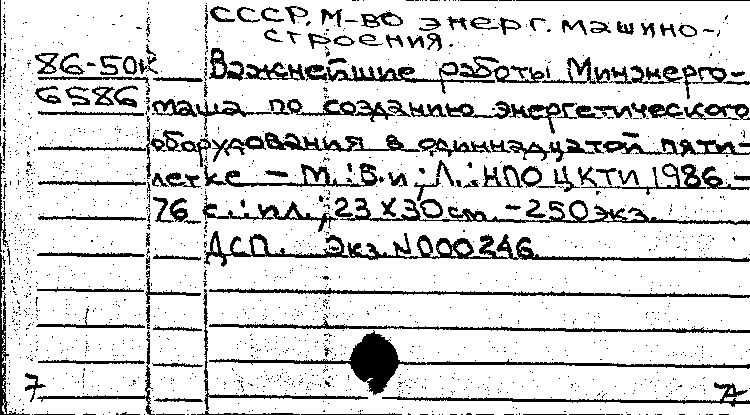 СССР. М-во энерг. машино-
строения.
86-50к Важнейшие работы Минэнерго-
6586 маша по созданию энергетического
оборудования в одиннадцатой пяти-
летке — М.: Б.и.; Л.: НПО ЦКТИ, 1986.-
76 с.: ил.; 23 х 30 см. - 250 экз.
ДСП. Экз. N 000246.
7